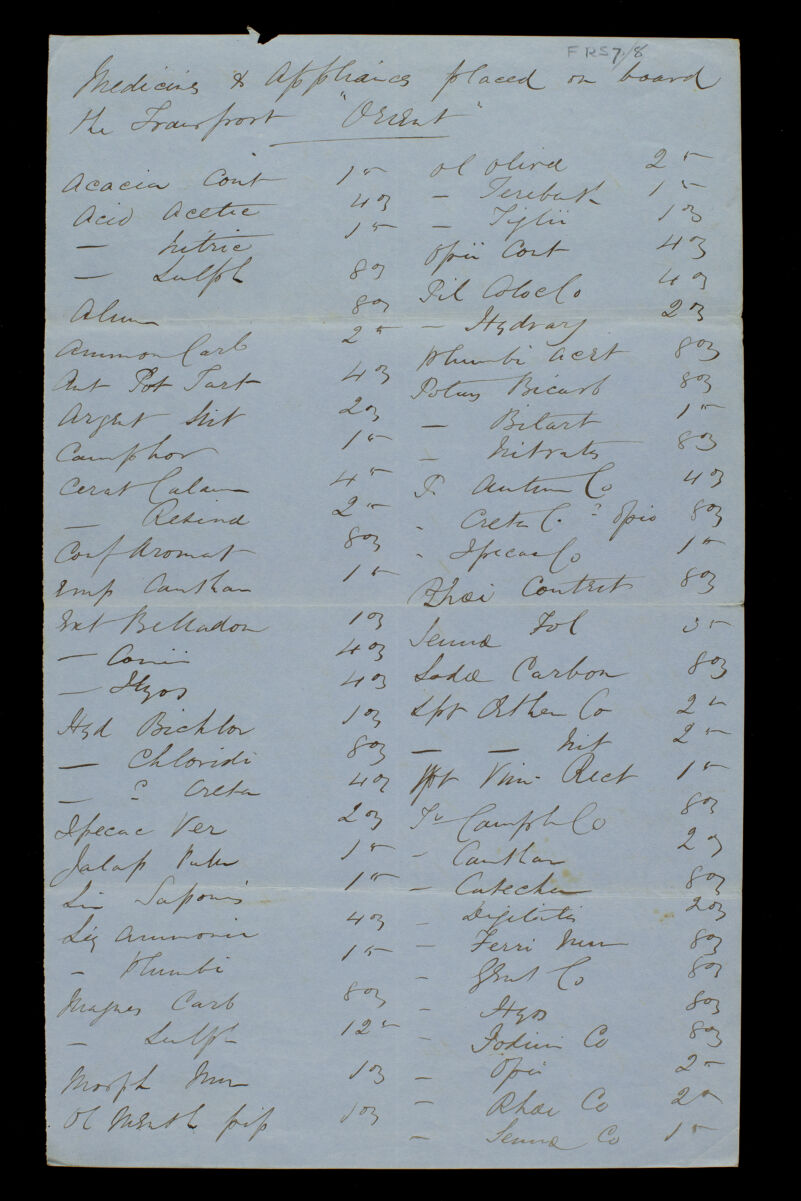 FRS7/8
Medicines & Appliances placed on board
the Transport "Orient"
Acacia Cont 1 lb
Acid Acetic 4 oz
— Nitric 1 lb
— Sulph 8 oz
Alum 8 oz
Ammon Carb 2 lb
Ant Pot Tart 4 oz
Argent Nit 2 oz
Camphor 1 lb
Cerat Calam 4 lb
— Resinæ 2 lb
Conf Aromat 8 oz
Emp Canthar 1 lb
Ext Belladon 1 oz
— Conii 4 oz
— Hyos 4 oz
Hyd Bichlor 1 oz
— Chloridi 8 oz
— c Creta 4 oz
Ipecac Ver 2 oz
Jalap Pulv 1 lb
Lin Saponis 1 lb
Liq Ammoniæ 4 oz
— Plumbi 1 lb
Magnes Carb 8 oz
— Sulph 12 lb
Morph Mur 1 oz
Ol Menth pip 1 oz
Ol Olivæ 2 lb
— Terebinth 1 lb
— Tiglii 1 oz
Opii Cont 4 oz
Pil Coloc Co 4 oz
— Hydrarg 2 oz
Plumbi Acet 8 oz
Potass Bicarb 8 oz
— Bitart 1 lb
— Nitratis 8 oz
P. Antim Co 4 oz
" Cretæ C. c Opio 8 oz
" Ipecac Co 1 lb
Rhæi Contrit 8 oz
Sennæ Fol 3 lb
Sodæ Carbon 8 oz
Spt Æther Co 2 lb
— — Nit 2 lb
Spt Vini Rect 1 lb
Tr Camph Co 8 oz
— Canthar 2 oz
— Catechu 8 oz
— Digitalis 2 oz
— Ferri Mur 8 oz
— Gent Co 8 oz
— Hyos 8 oz
— Iodini Co 8 oz
— Opii 2 lb
— Rhæi Co 2 lb
— Sennæ Co 1 lb